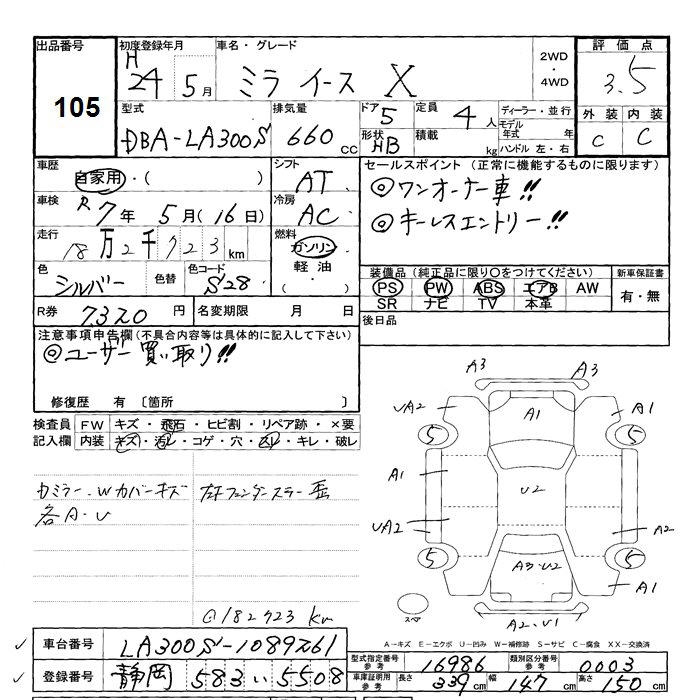 出品番号 初度登録年月 車名・グレード 2WD・4WD 評価点
105 H 24 5月 ミラ イース X 3.5
型式 排気量 ドア 5 定員 4人 ディーラー・並行 外装 内装
モデル年式 年
DBA-LA300S 660cc 形状 HB 積載 kg ハンドル 左・右 C C
車歴 自家用・( ) シフト AT セールスポイント (正常に機能するものに限ります)
◎ワンオーナー車!!
車検 R7年5月(16日) 冷房 AC
◎キーレスエントリー!!
走行 18万2千723km 燃料 ガソリン
軽油・( )
色 シルバー 色替 色コード S28
装備品 (純正品に限り○をつけてください) 新車保証書
PS PW ABS エアB AW 有・無
SR ナビ TV 本革
R券 7320円 名変期限 月 日 後日品
注意事項申告欄 (不具合内容等は具体的に記入して下さい)
◎ユーザー買い取り!!
修復歴 有 〔箇所 〕
検査員 FW キズ・飛石・ヒビ割・リペア跡・×要
記入欄 内装 キズ・汚レ・コゲ・穴・スレ・キレ・破レ
カミラー・Wカバーキズ
各A・U
@182723km
A3 A3
UA2 A1 A1
5 5
A1 U2
UA2 A2
5 A3・U2 5
A1
スペア A2・U1
A-キズ E-エクボ U-凹み W-補修跡 S-サビ C-腐食 XX-交換済
車台番号 LA300S-1089261
型式指定番号 参考 16986 類別区分番号 参考 0003
登録番号 静岡 583 い 5508
車庫証明用 参考 長さ 339cm 幅 147cm 高さ 150cm